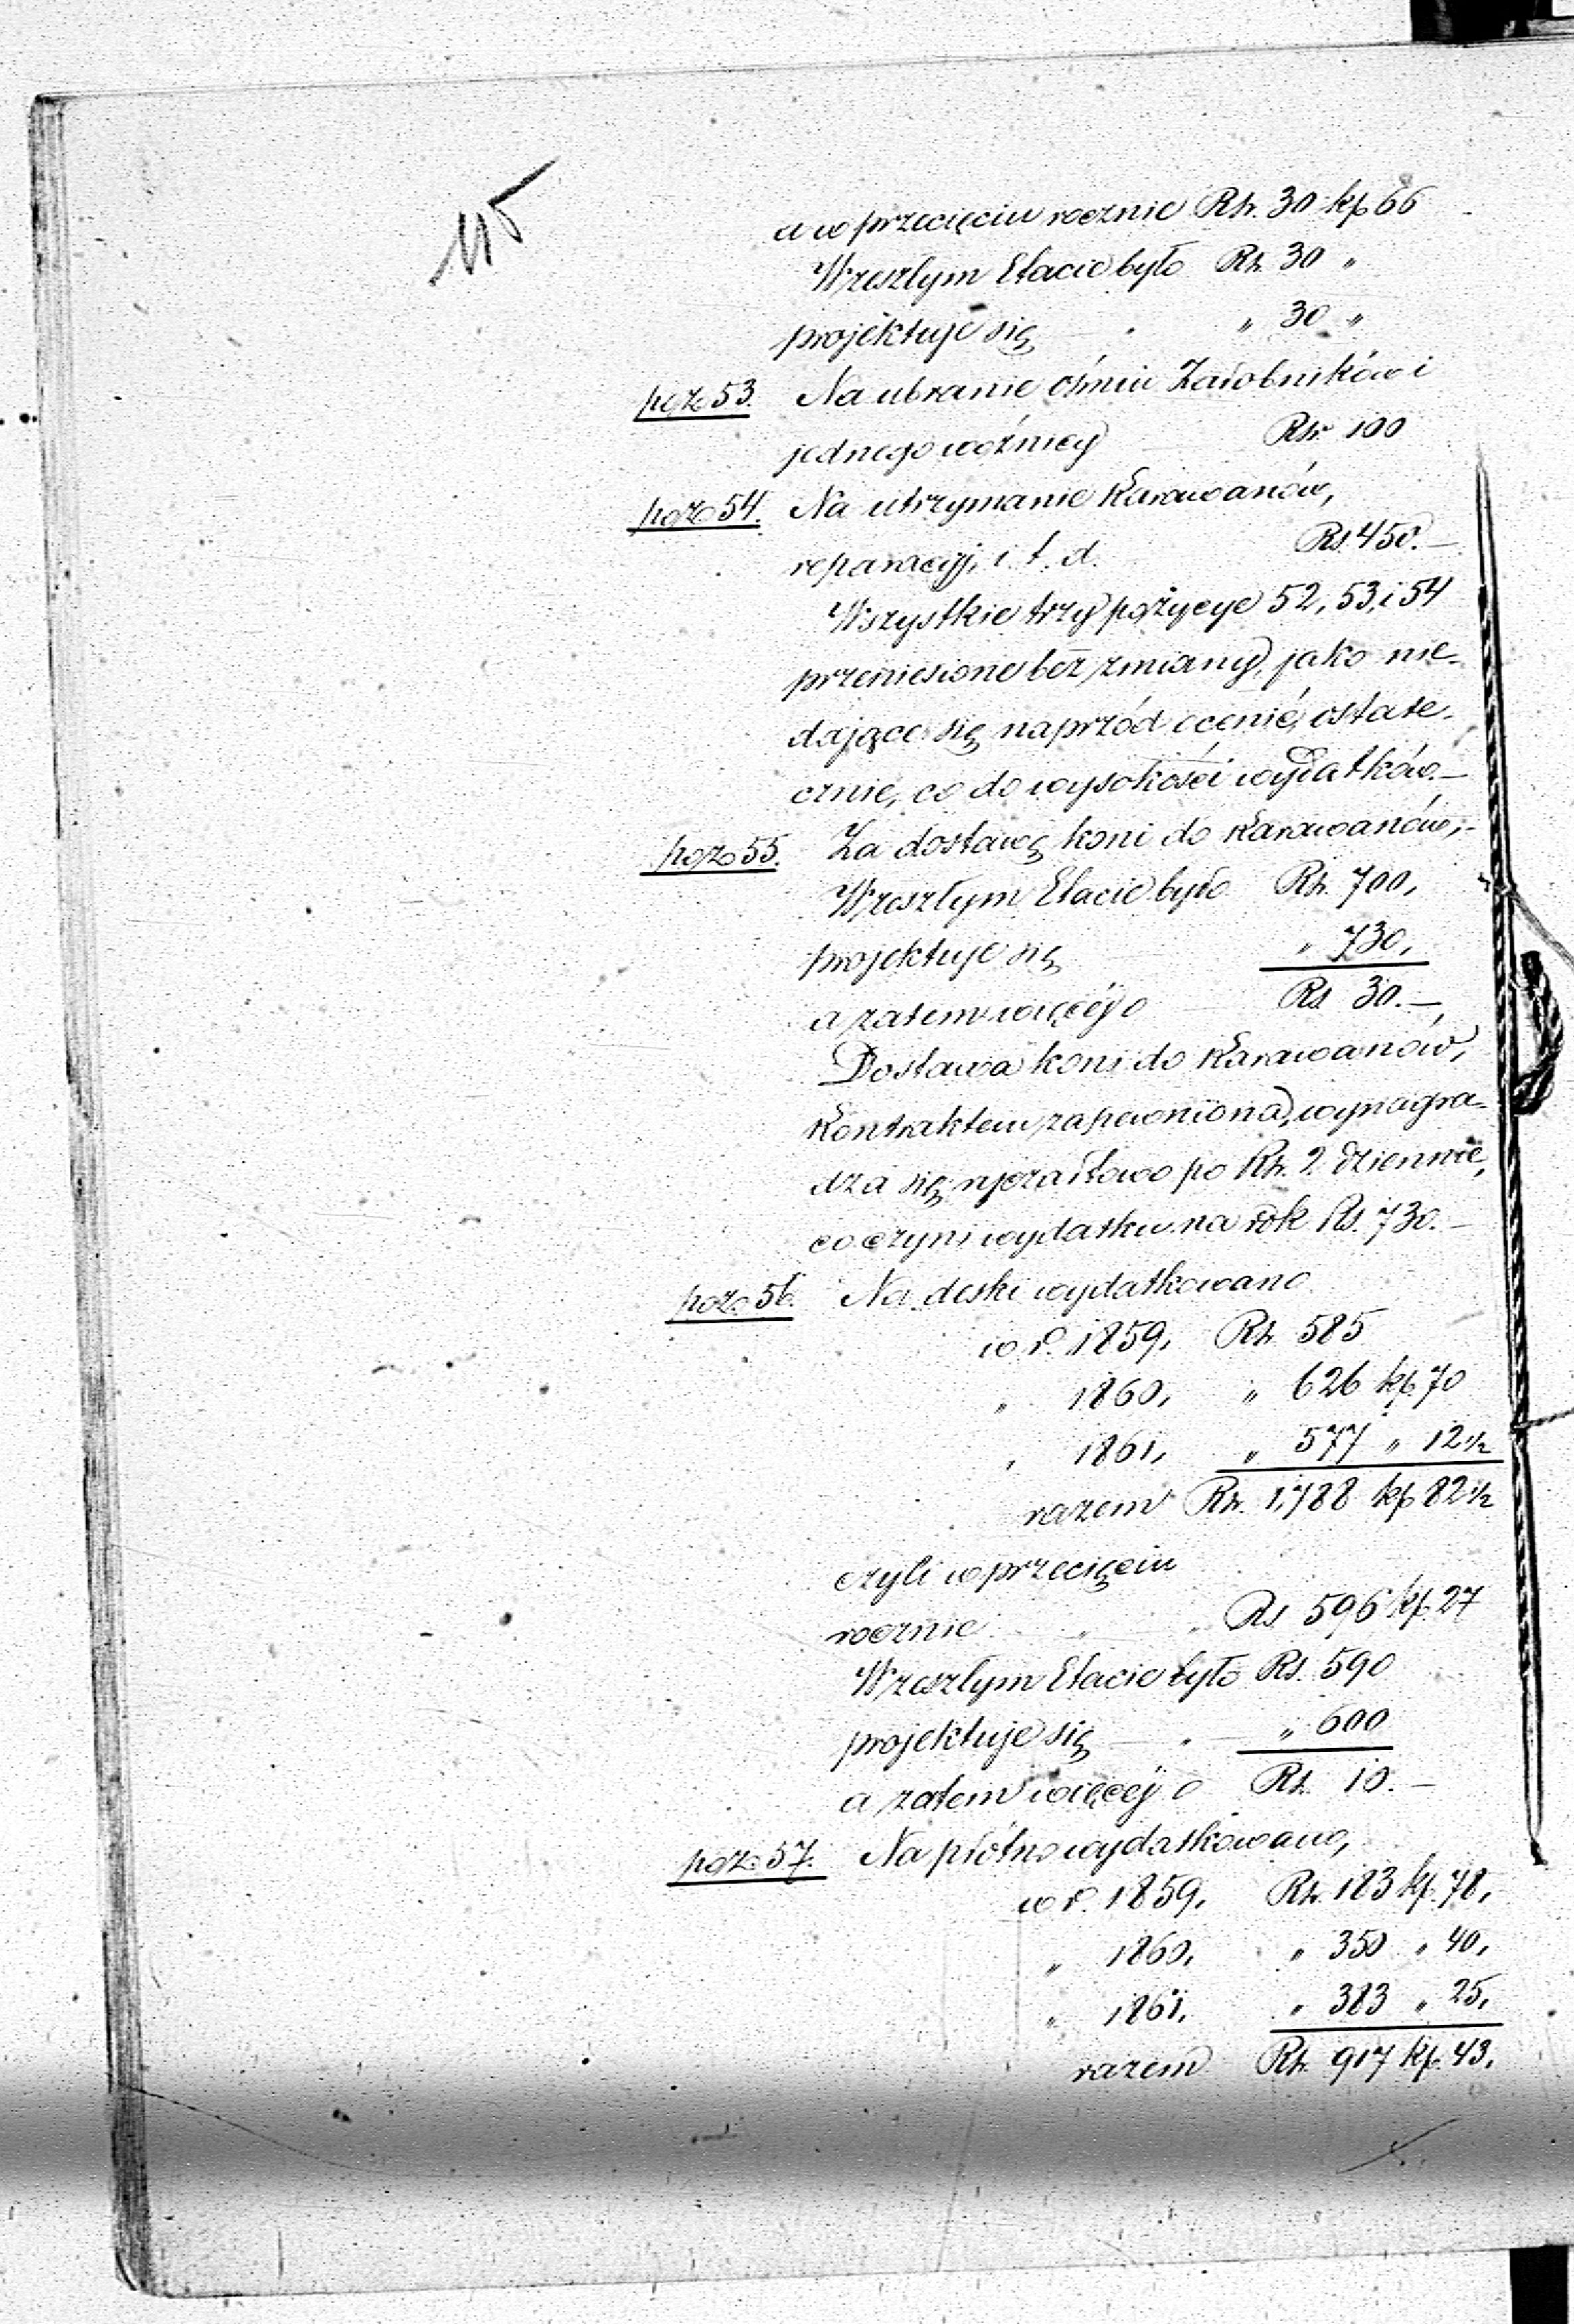 115
a w przecięciu rocznie Rs. 30 kp 66
W zeszłym Etacie było Rs. 30 "
projektuje się " 30 "
poz. 53. Na ubranie ośmiu Żałobników i
jednego woźnicy Rs. 100
poz. 54. Na utrzymanie Karawanów,
reparacyj, i. t. d. Rs. 450.—
Wszystkie trzy pozycye 52, 53, i 54
przeniesione bez zmiany, jako nie-
dające się naprzód ocenić, ostate-
cznie, co do wysokości wydatków.—
poz. 55. Za dostawę koni do Karawanów,-
W zeszłym Etacie było Rs. 700,
projektuje się " 730,
a zatem więcéj o Rs. 30.—,
Dostawa koni do Karawanów,
Kontraktem zapewniona, wynagra-
dza się ryczałtowo po Rs. 2 dziennie,
co czyni wydatku na rok Rs. 730.—
poz. 56. Na deski wydatkowano
w r. 1859, Rs. 585
" 1860, " 626 kp. 70
" 1861, " 577 " 12½
razem Rs. 1,788 kp 82½
czyli w przecięciu
rocznie Rs. 596 kp. 27
W zeszłym Etacie było Rs. 590
projektuje się — " — " 600
a zatem więcéj o Rs. 10.—
poz. 57. Na płótno wydatkowano,
w r. 1859, Rs. 183 kp. 78,
" 1860, " 350 " 40,
" 1861, " 383 " 25,
razem Rs. 917 kp. 43,